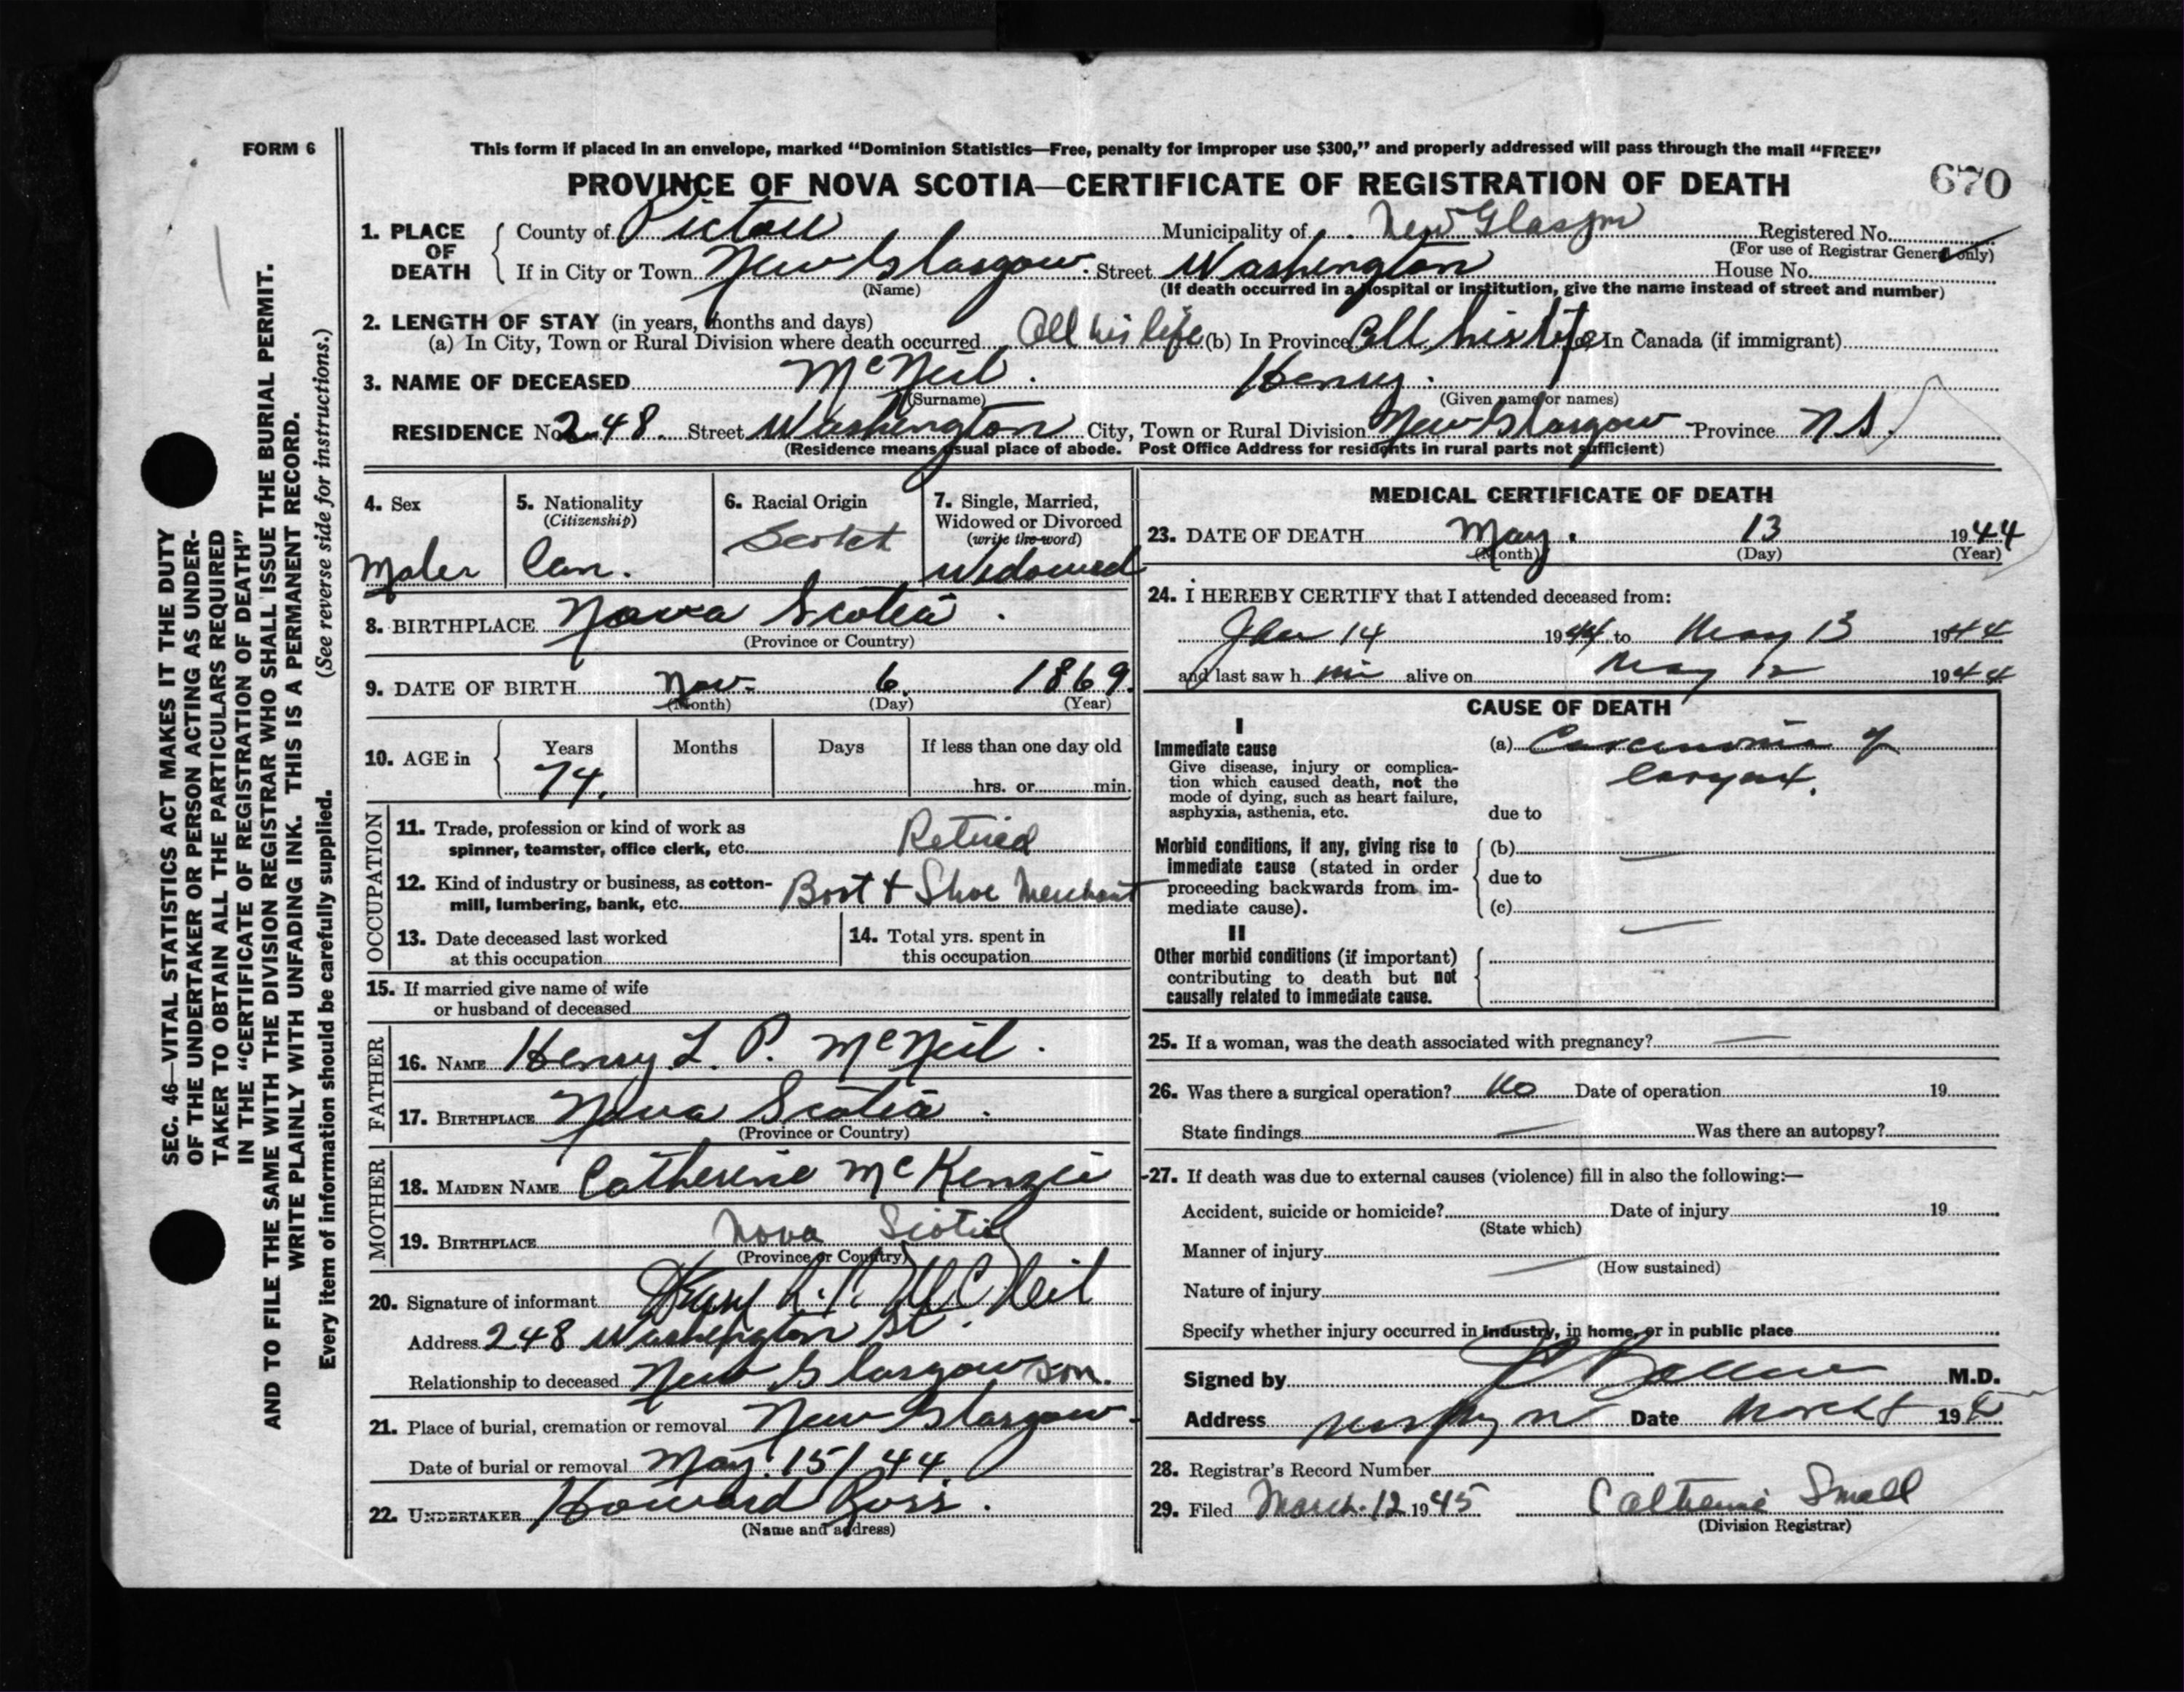 FORM 6
This form if placed in an envelope, marked "Dominion Statistics—Free, penalty for improper use $300," and properly addressed will pass through the mail "FREE"
PROVINCE OF NOVA SCOTIA—CERTIFICATE OF REGISTRATION OF DEATH
670
1. PLACE OF DEATH
County of Pictou Municipality of New Glasgow Registered No.
(For use of Registrar General only)
If in City or Town New Glasgow. Street Washington House No.
(Name) (If death occurred in a hospital or institution, give the name instead of street and number)
2. LENGTH OF STAY (in years, months and days)
(a) In City, Town or Rural Division where death occurred All his life (b) In Province All his life In Canada (if immigrant)
3. NAME OF DECEASED McNeil. Henry.
(Surname) (Given name or names)
RESIDENCE No. 248. Street Washington City, Town or Rural Division New Glasgow Province N.S.
(Residence means usual place of abode. Post Office Address for residents in rural parts not sufficient)
4. Sex
Male
5. Nationality
(Citizenship)
Can.
6. Racial Origin
Scotch
7. Single, Married,
Widowed or Divorced
(write the word)
Widowed
8. BIRTHPLACE Nova Scotia.
(Province or Country)
9. DATE OF BIRTH Nov. 6. 1869.
(Month) (Day) (Year)
10. AGE in
Years Months Days If less than one day old
74. hrs. or min.
OCCUPATION
11. Trade, profession or kind of work as
spinner, teamster, office clerk, etc. Retired
12. Kind of industry or business, as cotton-
mill, lumbering, bank, etc. Boot & Shoe Merchant
13. Date deceased last worked
at this occupation
14. Total yrs. spent in
this occupation
15. If married give name of wife
or husband of deceased
FATHER
16. NAME Henry L. P. McNeil.
17. BIRTHPLACE Nova Scotia.
(Province or Country)
MOTHER
18. MAIDEN NAME Catherine McKenzie
19. BIRTHPLACE Nova Scotia
(Province or Country)
20. Signature of informant Henry L.P. McNeil
Address 248 Washington St.
Relationship to deceased New Glasgow son.
21. Place of burial, cremation or removal New Glasgow
Date of burial or removal May. 15/44
22. UNDERTAKER Howard Ross.
(Name and address)
MEDICAL CERTIFICATE OF DEATH
23. DATE OF DEATH May. 13 1944
(Month) (Day) (Year)
24. I HEREBY CERTIFY that I attended deceased from:
Jan 14 1944 to May 13 1944
and last saw h im alive on May 12 1944
CAUSE OF DEATH
I
Immediate cause
Give disease, injury or complica-
tion which caused death, not the
mode of dying, such as heart failure,
asphyxia, asthenia, etc.
(a) Carcinoma of
larynx.
due to
Morbid conditions, if any, giving rise to
immediate cause (stated in order
proceeding backwards from im-
mediate cause).
(b)
due to
(c)
II
Other morbid conditions (if important)
contributing to death but not
causally related to immediate cause.
25. If a woman, was the death associated with pregnancy? —
26. Was there a surgical operation? No Date of operation 19
State findings — Was there an autopsy?
27. If death was due to external causes (violence) fill in also the following:—
Accident, suicide or homicide? Date of injury 19
(State which)
Manner of injury
(How sustained)
Nature of injury
Specify whether injury occurred in industry, in home, or in public place
Signed by M.D.
Address Date March 8 19
28. Registrar's Record Number
29. Filed March. 12 1945 Catherine Small
(Division Registrar)
SEC. 46—VITAL STATISTICS ACT MAKES IT THE DUTY
OF THE UNDERTAKER OR PERSON ACTING AS UNDER-
TAKER TO OBTAIN ALL THE PARTICULARS REQUIRED
IN THE "CERTIFICATE OF REGISTRATION OF DEATH"
AND TO FILE THE SAME WITH THE DIVISION REGISTRAR WHO SHALL ISSUE THE BURIAL PERMIT.
WRITE PLAINLY WITH UNFADING INK. THIS IS A PERMANENT RECORD.
Every item of information should be carefully supplied. (See reverse side for instructions.)